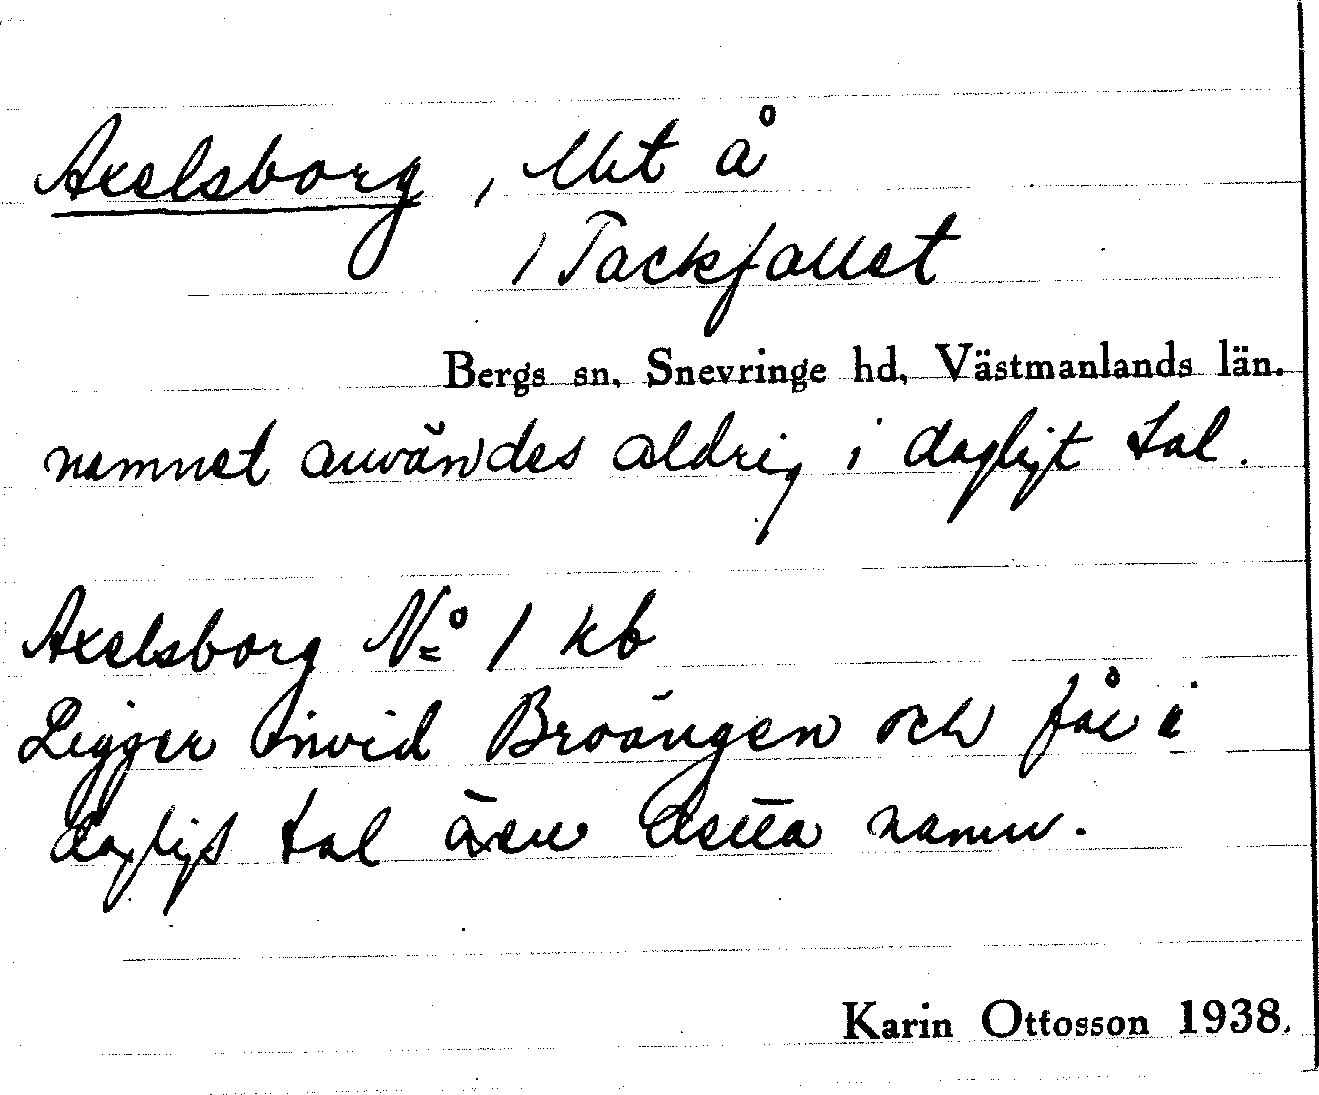 Axelsborg, lht å
1 Tackfallet
Bergs sn, Snevringe hd, Västmanlands län.
namnet användes aldrig i dagligt tal.
Axelsborg No 1 kb
Ligger invid Broängen och får i
dagligt tal även detta namn.
Karin Ottosson 1938.